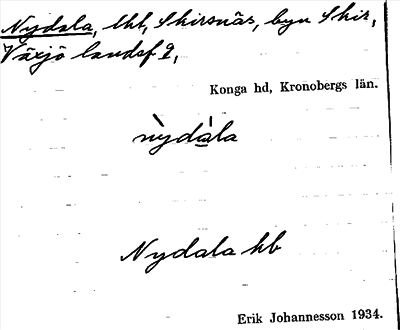 Nydala, lht, Skirsnäs, byn Skir,
Växjö landsf 9,
Konga hd, Kronobergs län.
nỳdála
Nydala hb
Erik Johannesson 1934.